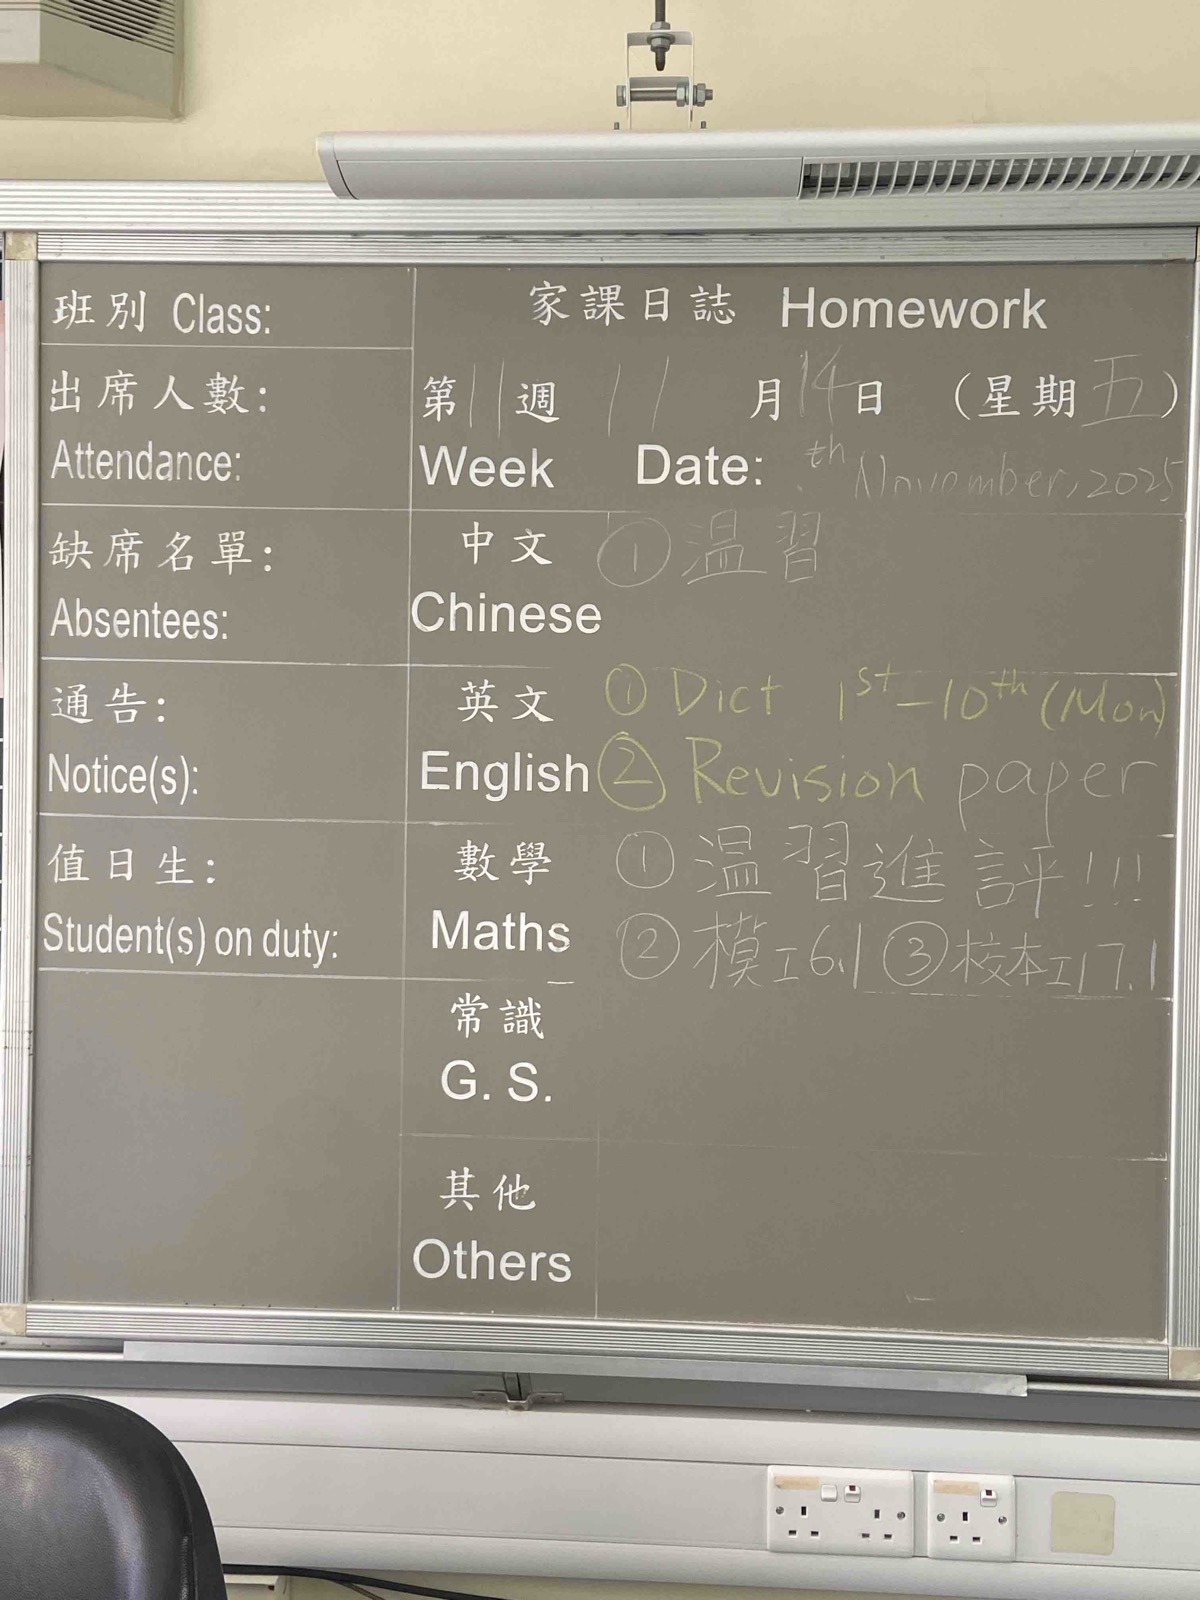 班別 Class:
家課日誌 Homework
出席人數:
第11週 11月14日 (星期五)
Attendance:
Week Date: th November, 2025
缺席名單:
中文 ①温習
Absentees:
Chinese
通告:
英文 ① Dict 1st-10th (Mon)
Notice(s):
English ② Revision paper
值日生:
數學 ①温習進評!!!
Student(s) on duty:
Maths ②模工6.1 ③校本工17.1
常識
G. S.
其他
Others